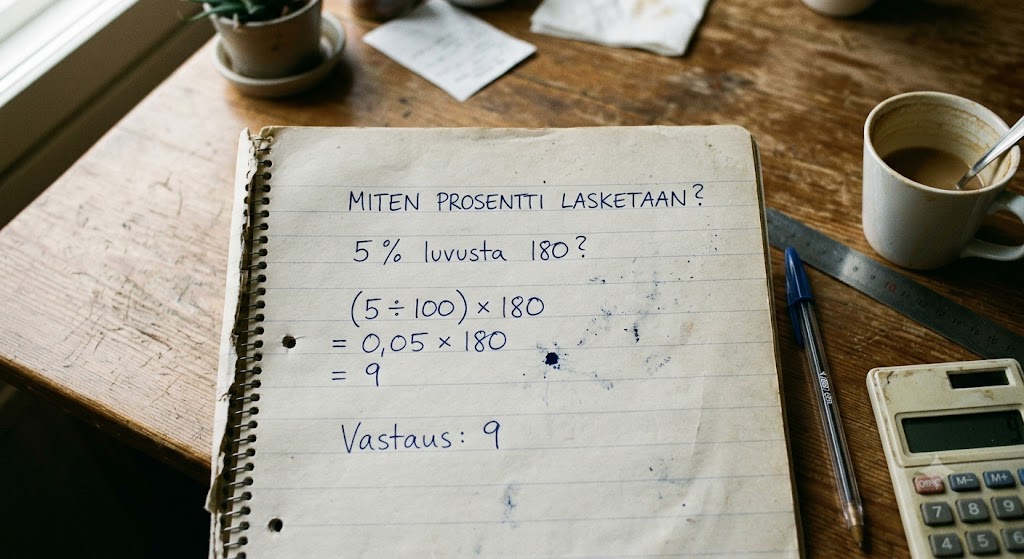 MITEN PROSENTTI LASKETAAN?
5 % luvusta 180?
(5 ÷ 100) × 180
= 0,05 × 180
= 9
Vastaus: 9
M-
M+
7
8
9
4
5
6